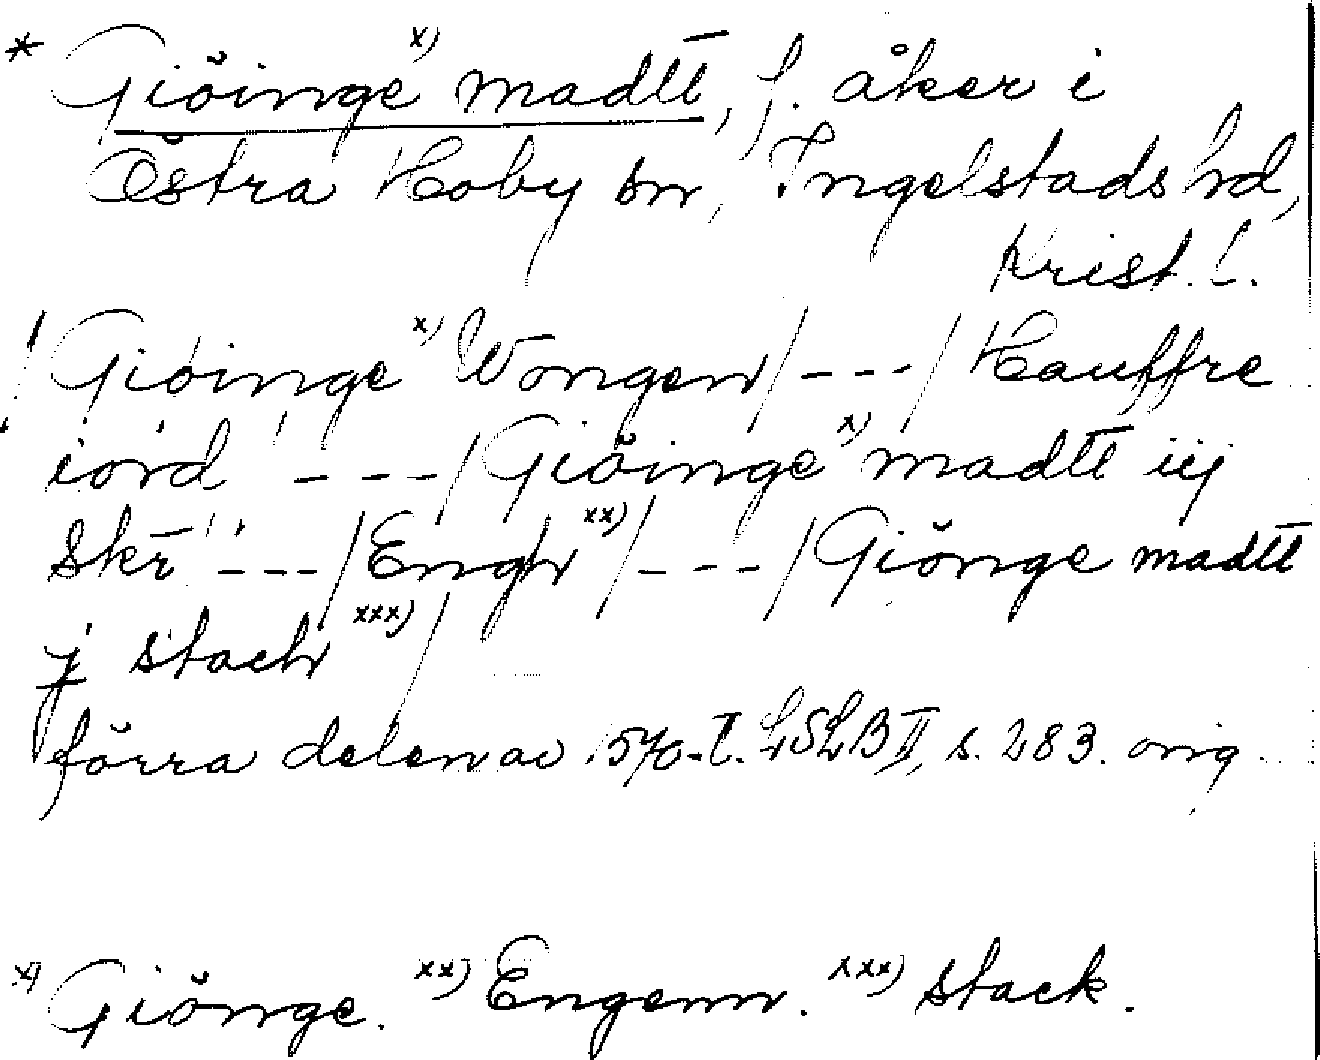 * Giöinge x) madtt, f. åker i
Östra Hoby sn, Ingelstads hd,
Krist. l.
/ Giöinge x) Wongen / --- / Hauffre
iord --- / Giöinge x) madtt iij
Skr --- / Engh xx) / --- / Giönge madtt
j stach xxx) /
förra delen av 1570-t. LSLB II, s. 283. orig.
x) Giönge. xx) Engenn. xxx) stack.